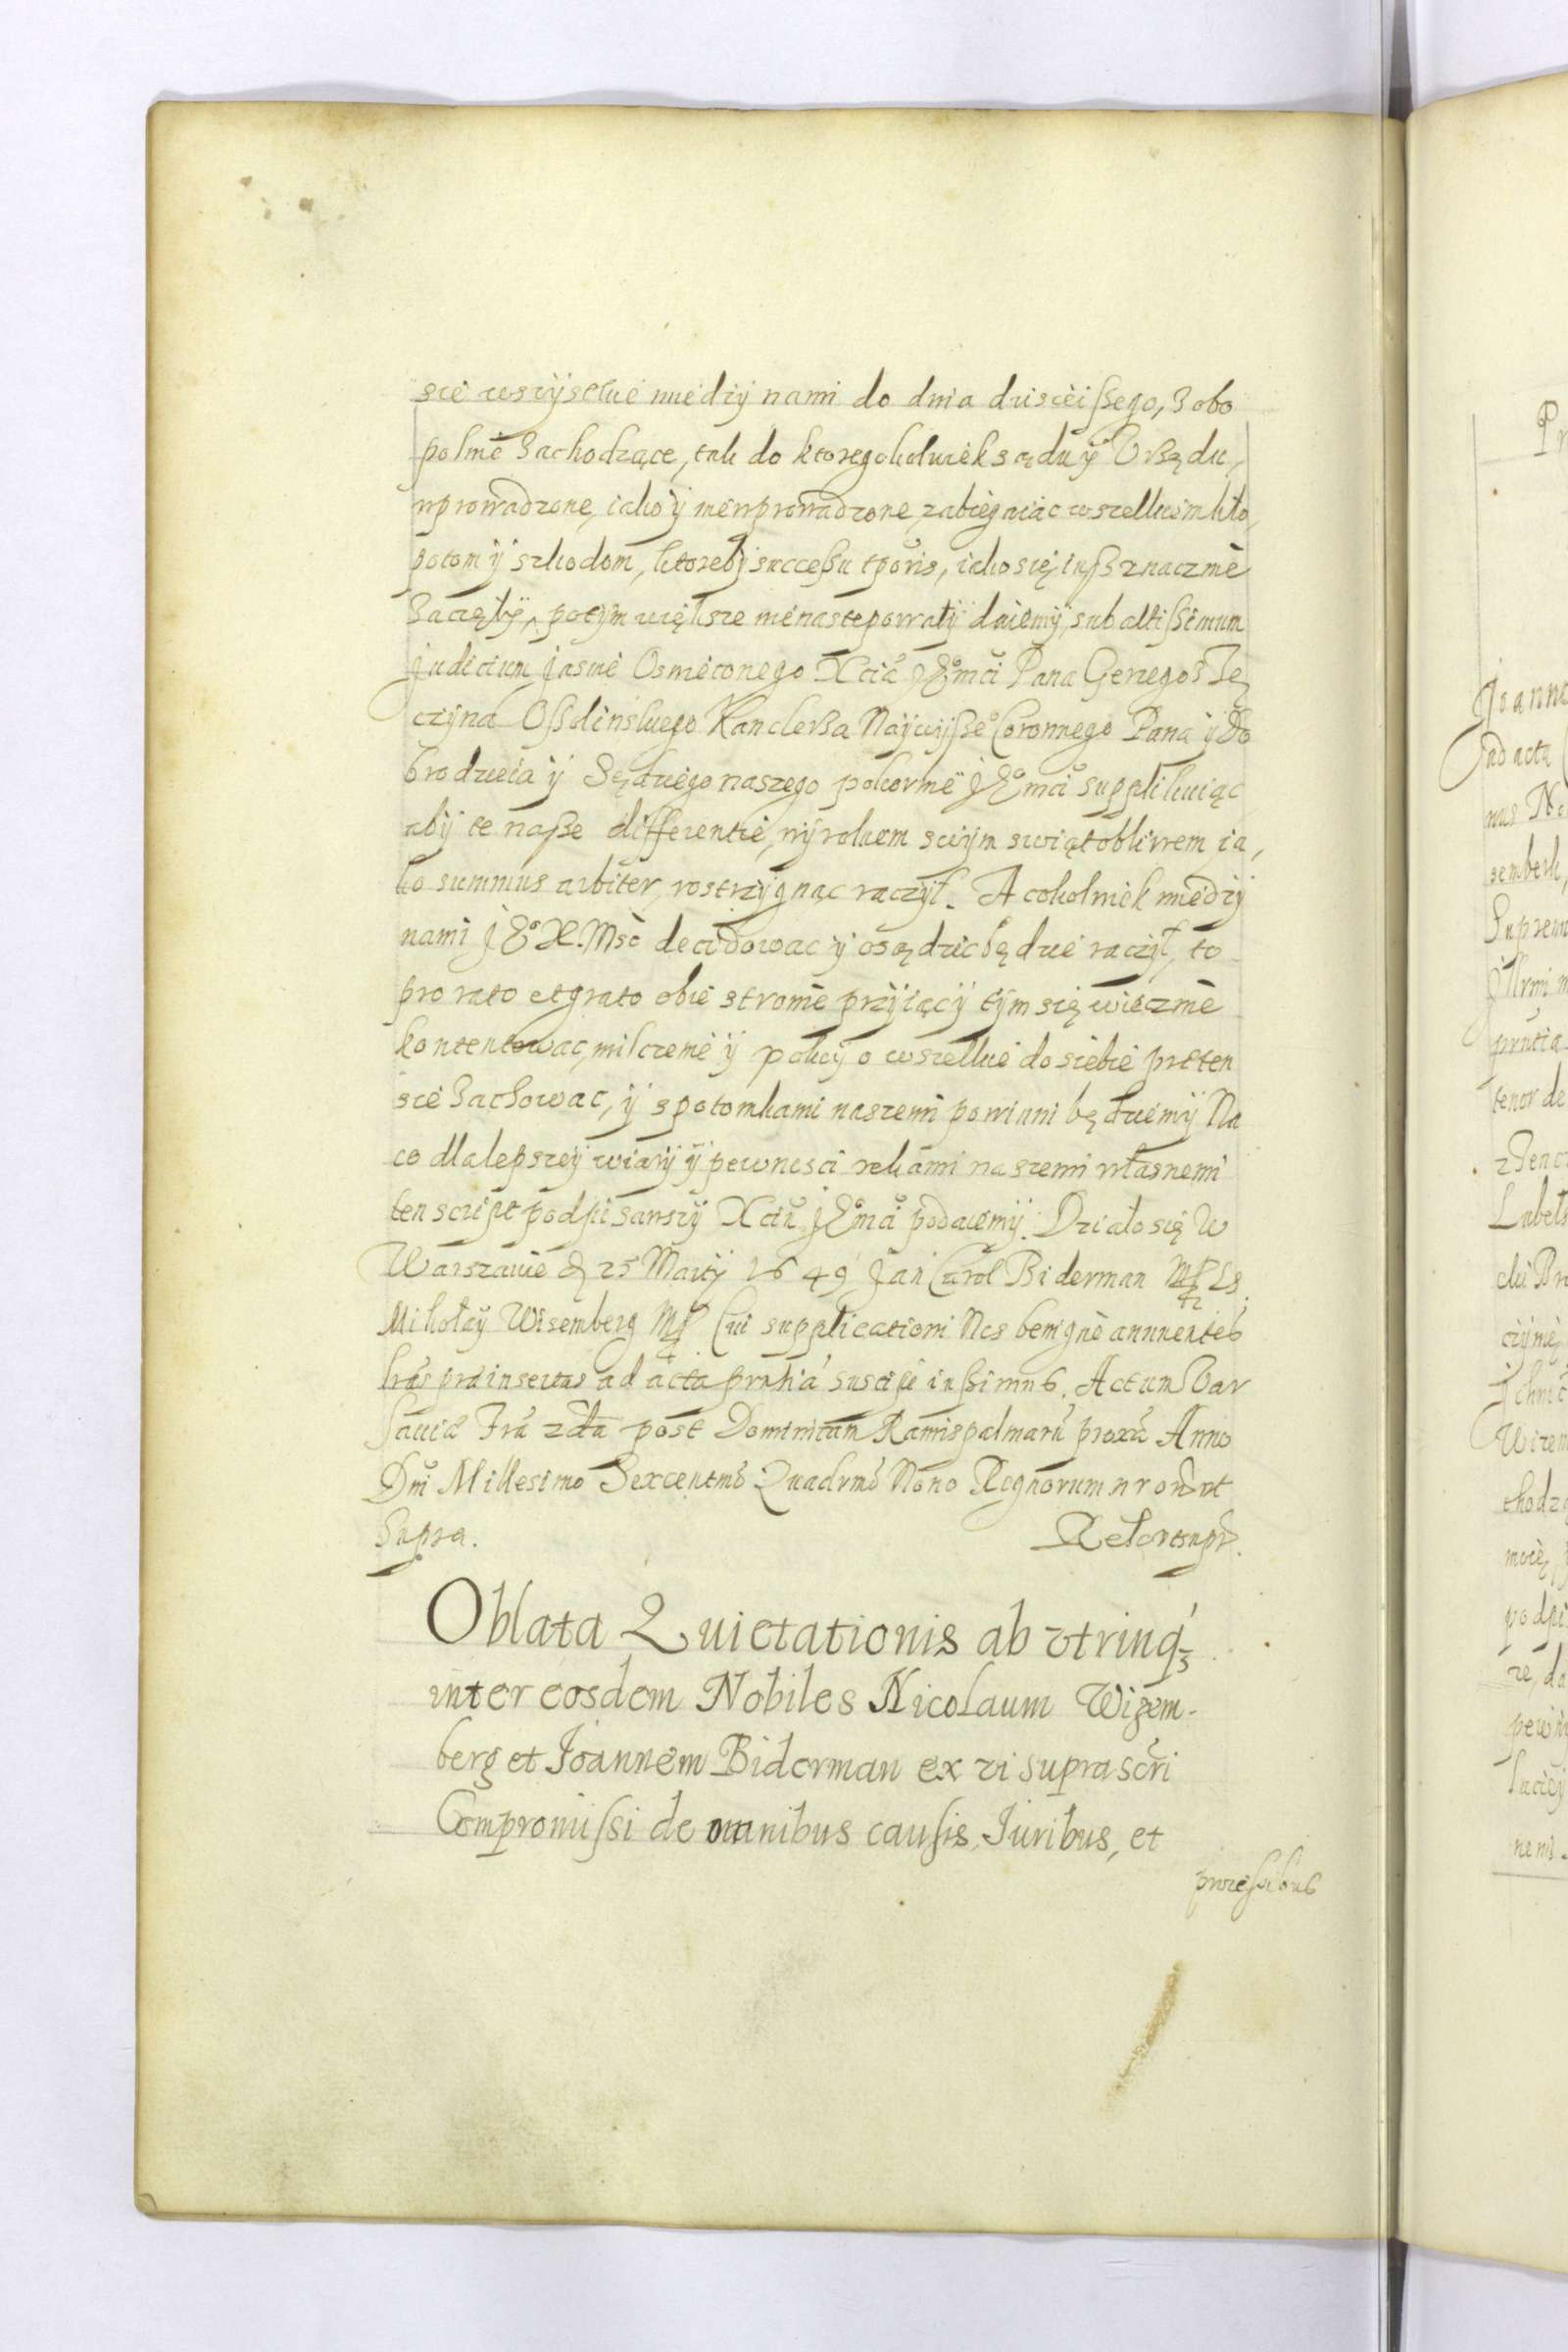 scie wszystkie miedzy nami do dnia dzisieißego, z obo
polnie zachodzące, tak do ktoregokolwiek sądu y Vrzędu,
wprowadzone, iako y niewprowadzone, zabiegaiąc wszelkiem kło,
potom y szkodom, ktoreby successu tp̃oris, iako się iusz znacznie
zaczęły, potym większe nienastepowały daiemy, sub altissimum
judicium Jasnie Oswieconego Xcia JE͠mci Pana Gerzego z Tę,
czyna Ossolinskiego Kanclerza Naywyße° Coronnego Pana y Do
brodzieia y Sędziego naszego pokornie JE͠mci supplikuiąc
aby te naße differentie, wyrokiem swym swiątobliwem ja,
ko summus arbiter, rostrzygnąc raczył. A cokolwiek miedzy
nami JE° X. Msc decidowac y osądzic będzie raczył, to
pro rato et grato obie stronie przyiąc y tym się wiecznie
kontentowac, milczenie y pokoy o wszelkie do siebie preten
sie zachowac, y spotomkami naszemi powinni będziemy Na
co dla lepszey wiary y pewnosci rękami naszemi własnemi
ten script podpisawszy Xciu JE͠mci podaiemy. Działo się W
Warszawie d. 25 Marty 1649 Jan Carol Biderman MP LS.
Mikołay Wisemberg MP Cui supplicationi Nos benigne annuentes
lrãs præinsertas ad acta prñtia suscipi iussimus. Actum Var
saviæ Fria 2da post Dominicam Ramispalmarũ proxa Anno
Dñi Millesimo Sexcentmo Quadrmo Nono Regnorum nrorũ ut
Supra. Relor ut supr.
Oblata Quietationis ab vtrinq́₃
inter eosdem Nobiles Nicolaum Wizem-
berg et Joannem Biderman ex vi suprascri
Compromissi de omnibus causis, Juribus, et
processibus